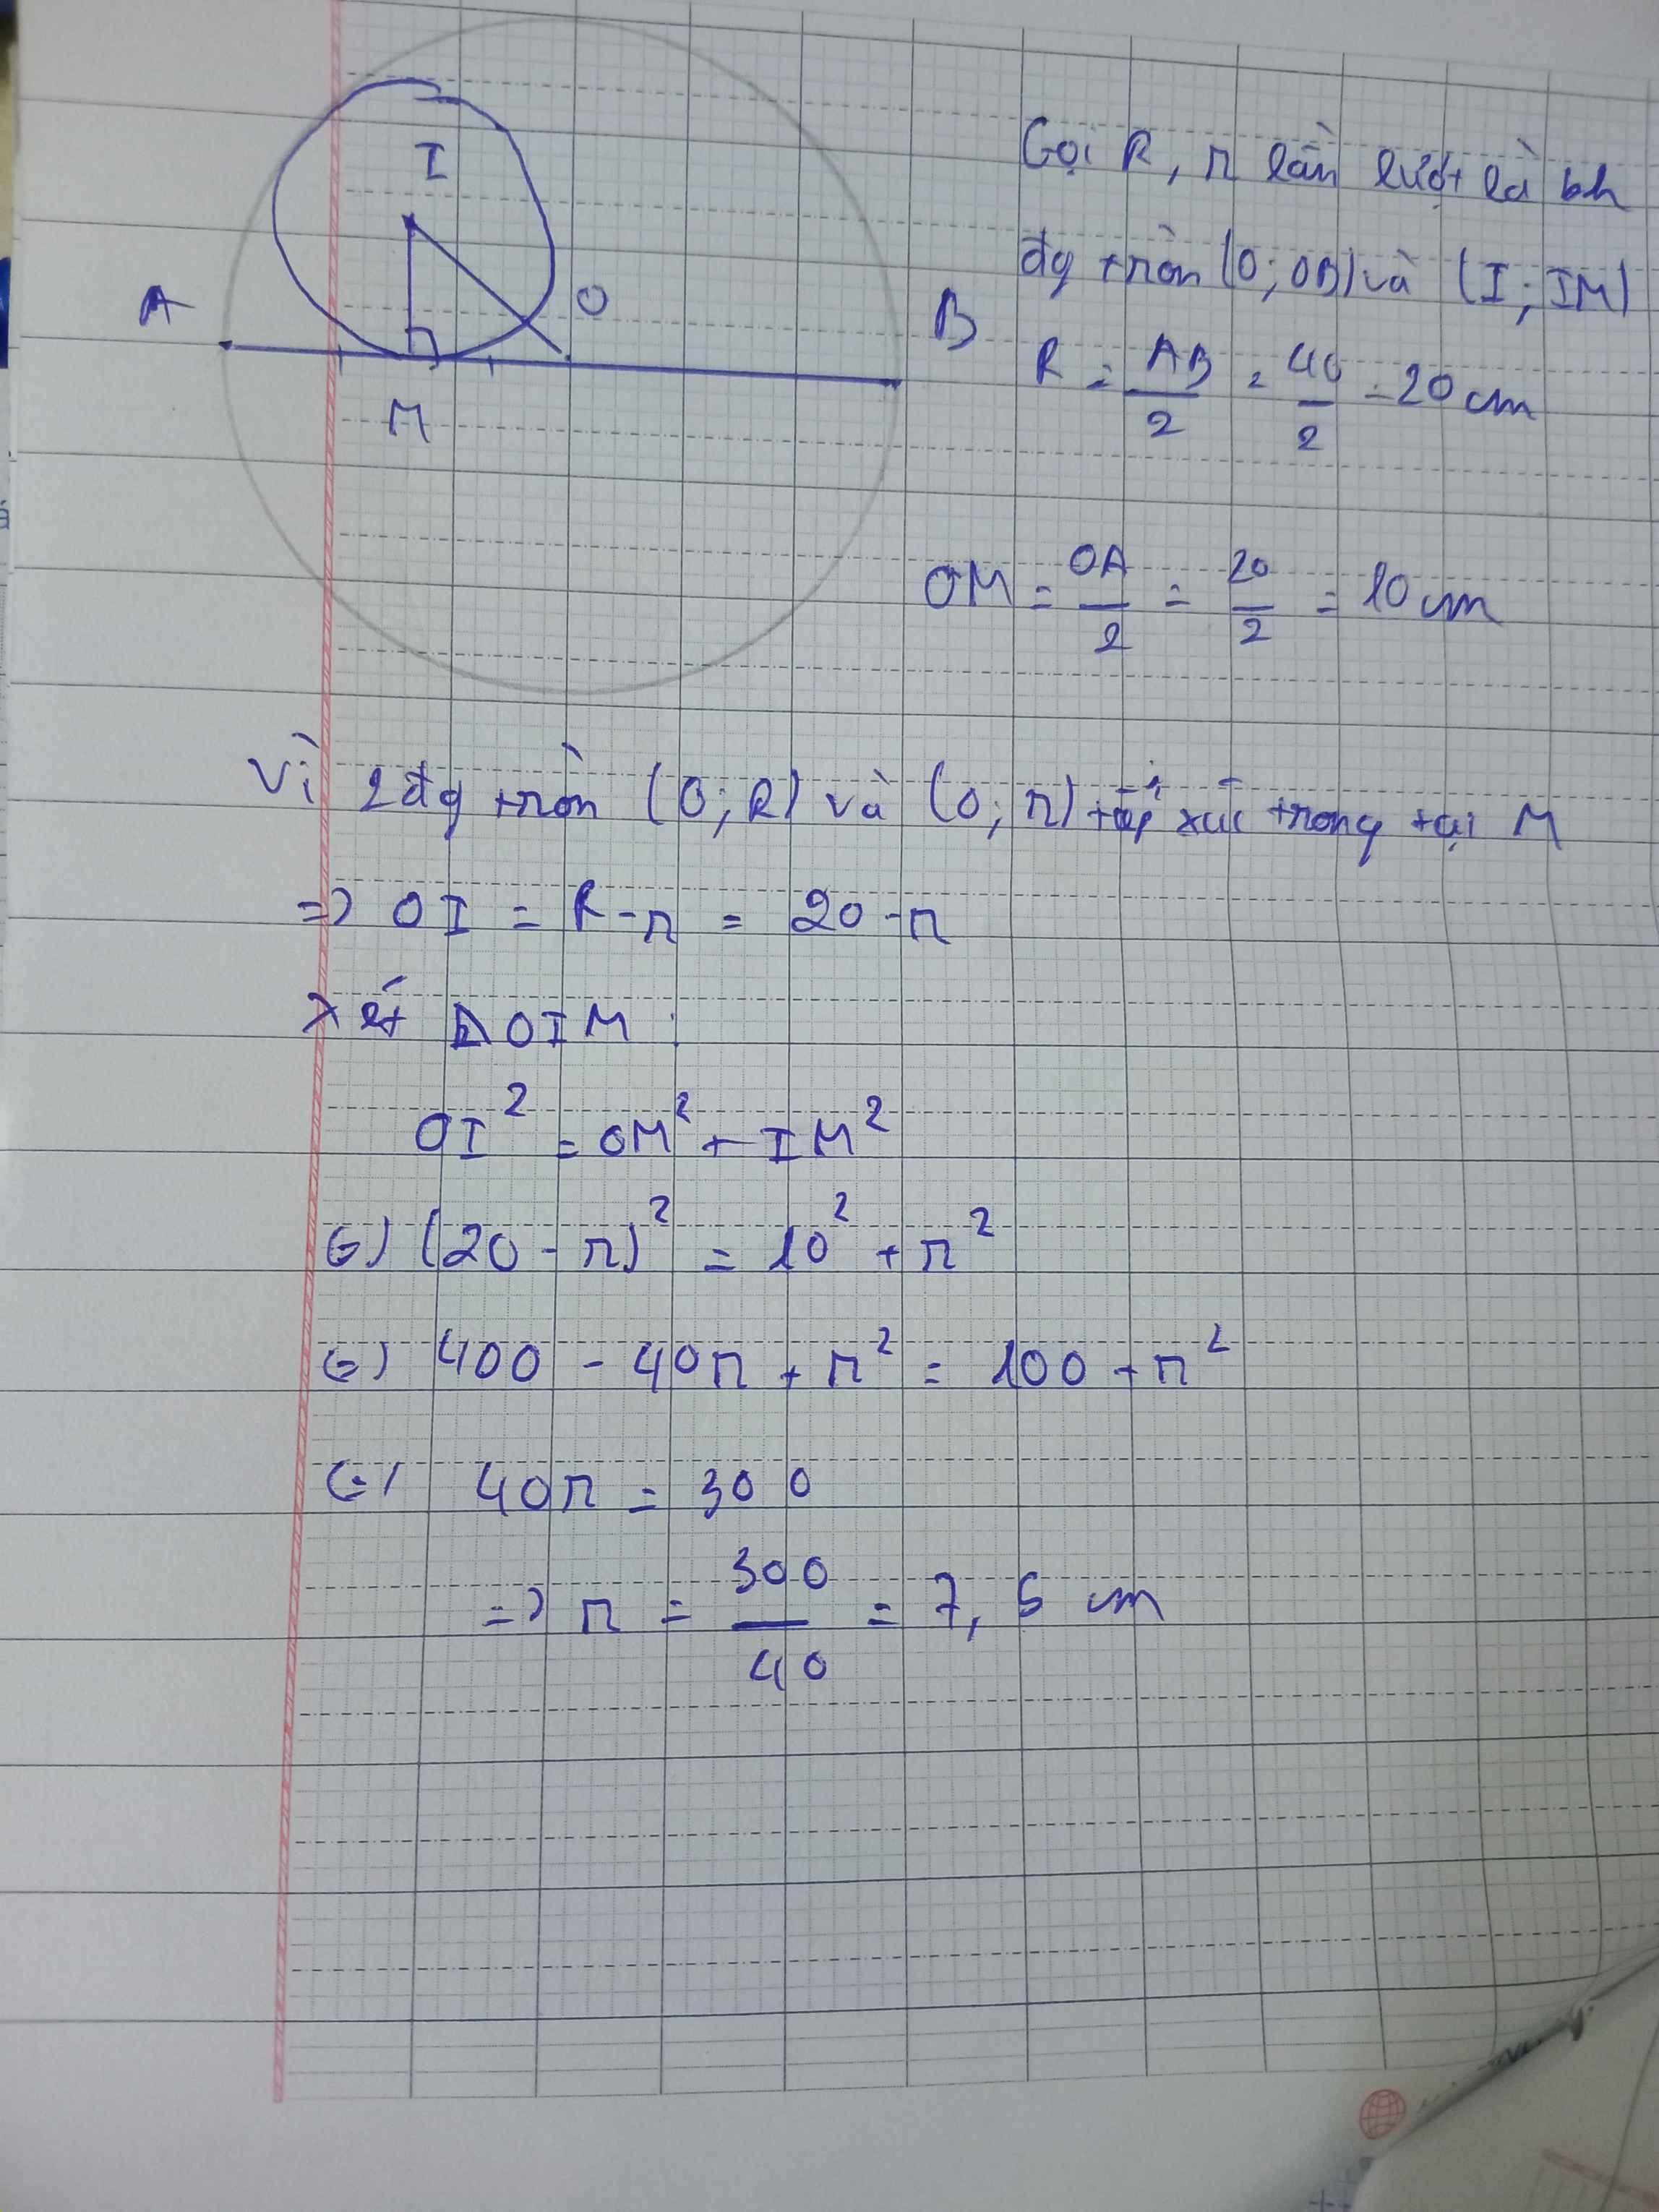 I
A
O
B
M
Gọi R, r lần lượt là bk
đg tròn (O; OB) và (I; IM)
R = AB/2 = 40/2 = 20 cm
OM = OA/2 = 20/2 = 10 cm
Vì 2 đg tròn (O; R) và (O; r) tiếp xúc trong tại M
=> OI = R - r = 20 - r
Xét Δ OIM :
OI² = OM² + IM²
(=) (20 - r)² = 10² + r²
(=) 400 - 40r + r² = 100 + r²
(=) 40r = 300
=> r = 300/40 = 7,5 cm